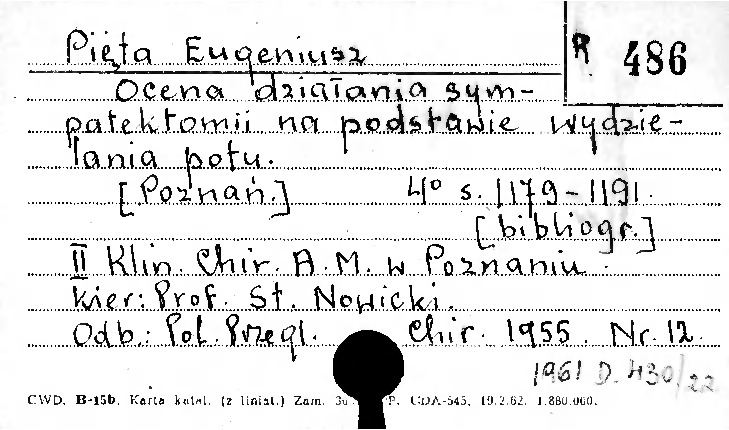 Pięta Eugeniusz
R 486
Ocena działania sym-
patektomii na podstawie wydzie-
lania potu.
[Poznań.] 4° s. 1179-1191.
[bibliogr.]
II Klin. Chir. A.M. w Poznaniu.
Kier: Prof. St. Nowicki.
Odb.: Pol. Przegl. Chir. 1955. Nr. 12.
1961 D. 430/22
CWD. B-15b. Karta katal. (z liniat.) Zam. P. CDA-545. 19.2.62. 1.880.000.